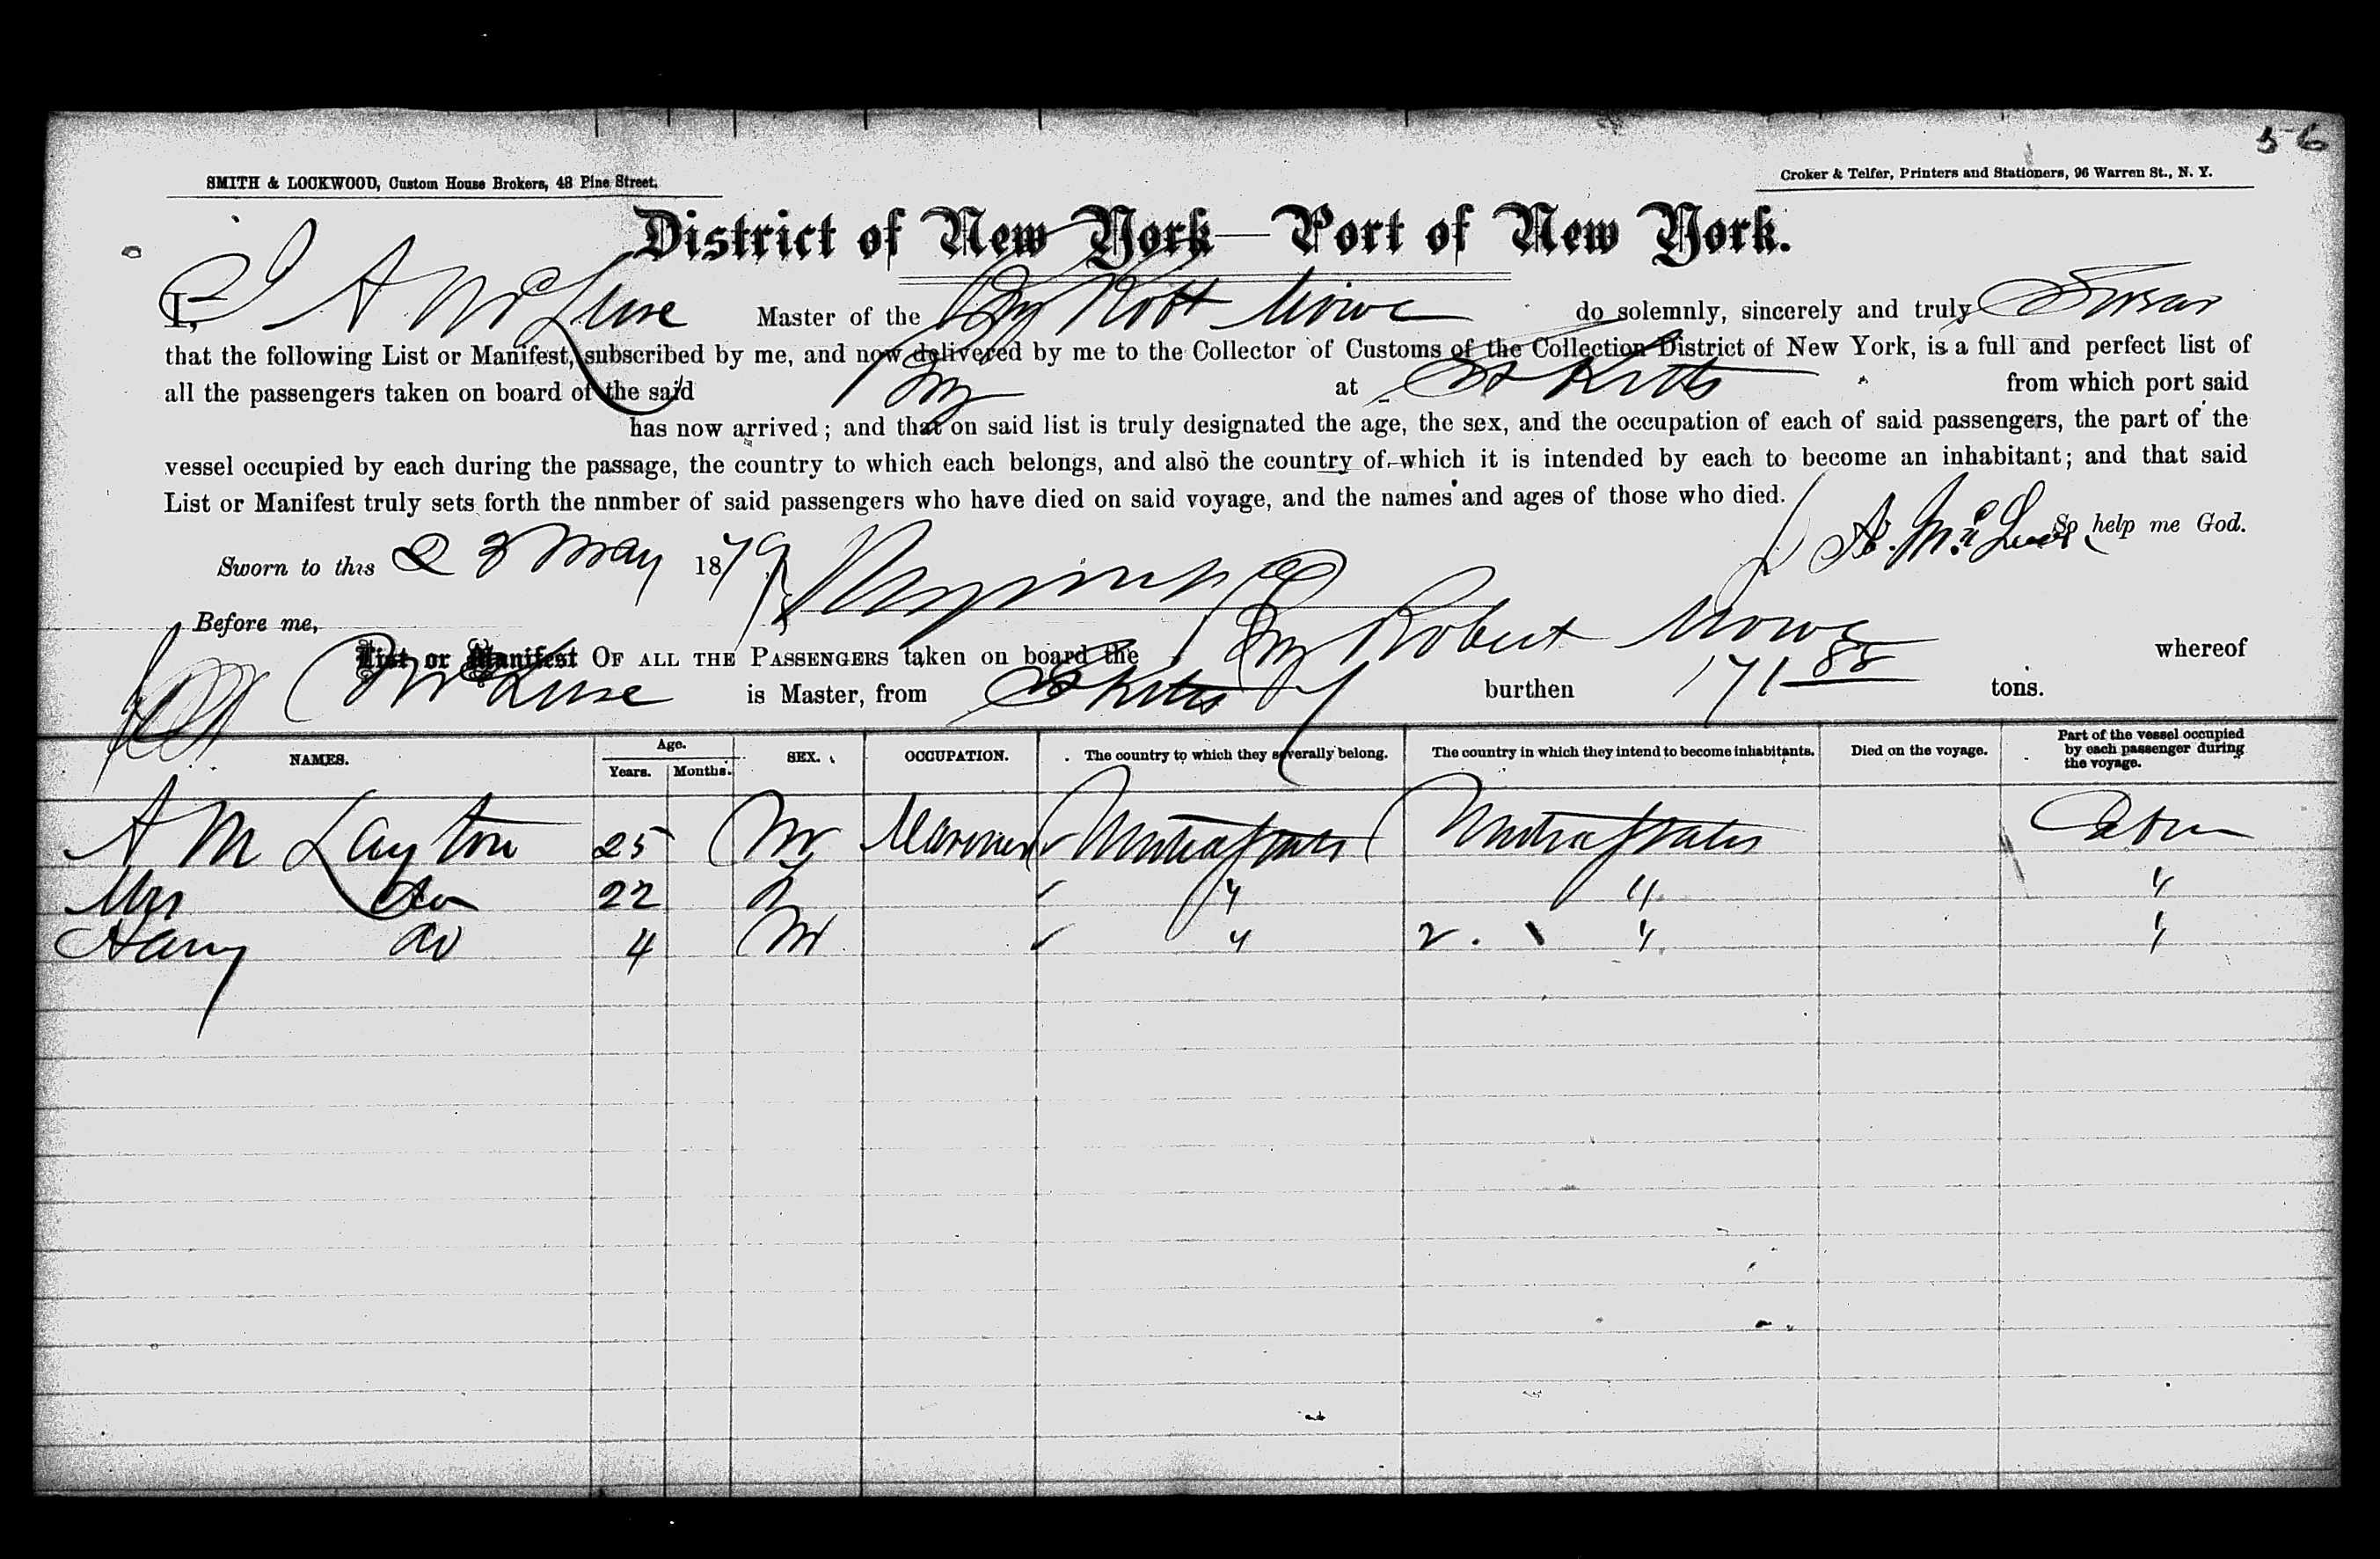 56
SMITH & LOCKWOOD, Custom House Brokers, 48 Pine Street.
Croker & Telfer, Printers and Stationers, 96 Warren St., N. Y.
District of New York—Port of New York.
I, A Master of the Robt Mowe do solemnly, sincerely and truly Swear
that the following List or Manifest, subscribed by me, and now delivered by me to the Collector of Customs of the Collection District of New York, is a full and perfect list of
all the passengers taken on board of the said at St Kitts from which port said
has now arrived; and that on said list is truly designated the age, the sex, and the occupation of each of said passengers, the part of the
vessel occupied by each during the passage, the country to which each belongs, and also the country of which it is intended by each to become an inhabitant; and that said
List or Manifest truly sets forth the nnmber of said passengers who have died on said voyage, and the names and ages of those who died.
So help me God.
Sworn to this 23 May 1879
Before me,
List or Manifest OF ALL THE PASSENGERS taken on board the Robert Mowe whereof
is Master, from St Kitts burthen 171 88 tons.
NAMES. Age. Years. Months. SEX. OCCUPATION. The country to which they severally belong. The country in which they intend to become inhabitants. Died on the voyage. Part of the vessel occupied by each passenger during the voyage.
A M Layton 25 M Mariner United States United States Cabin
Mrs Do 22 f " " "
Harry Do 4 M " 2. " "